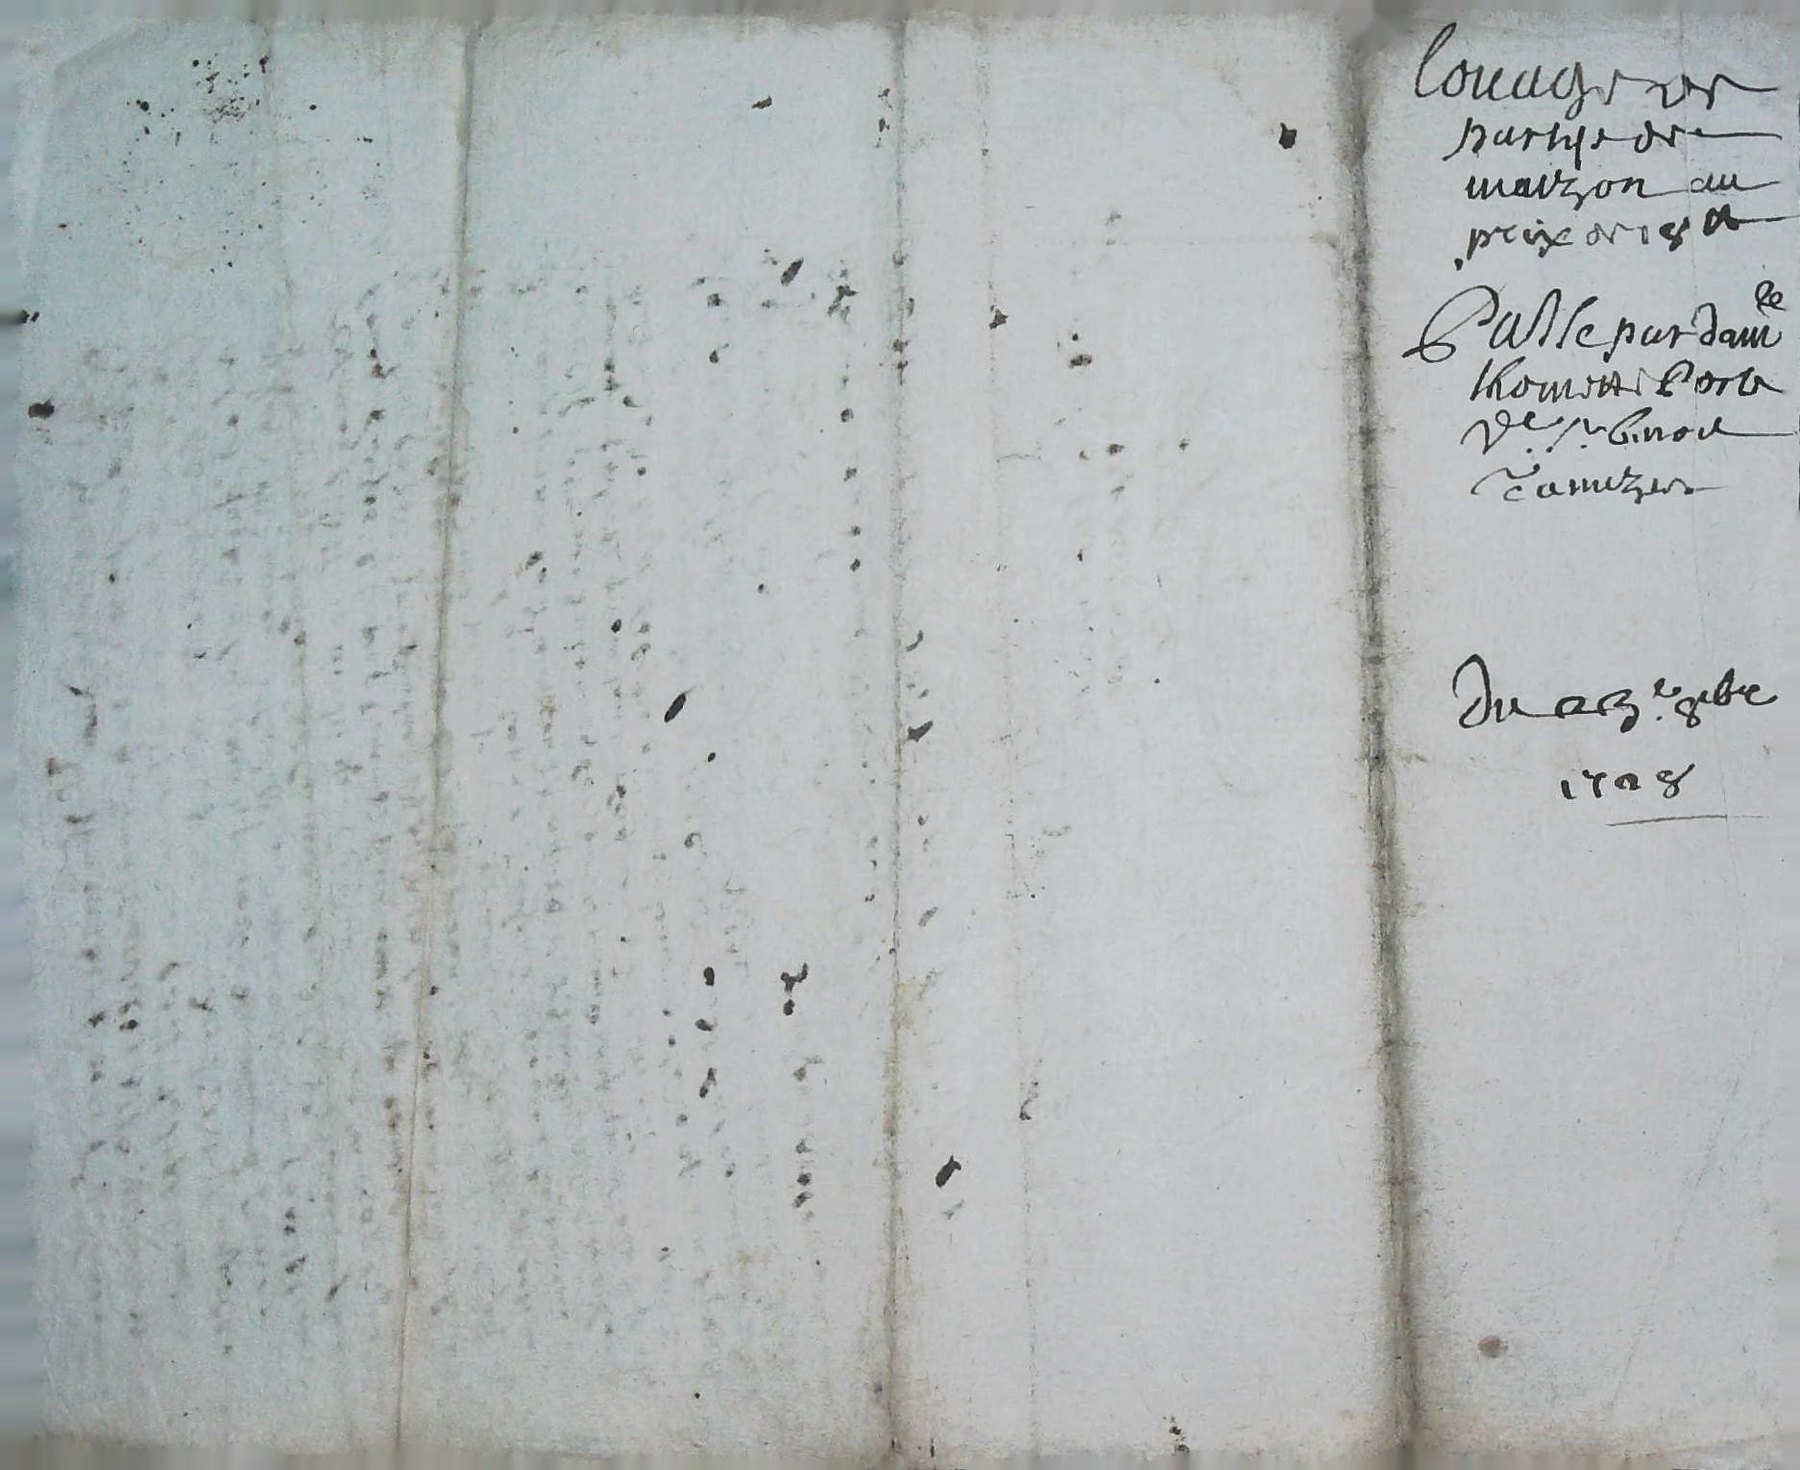 louage de
partye de
maizon au
prix de 18 ₶
Passe par dam.lle
thomette
de Sr benoit
Du 23.e 8bre
1728